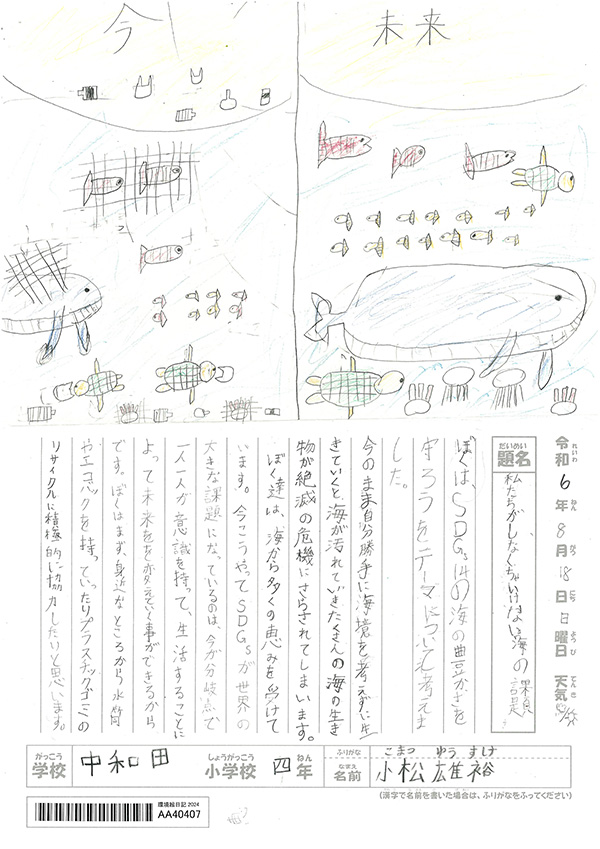 今
未来
令和6年8月18日日曜日 天気
れいわ ねん がつ にち ようび てんき
だいめい
題名
私たちがしなくちゃいけない海の課題
ぼくは、SDGs14の海の豊かさを
守ろうをテーマについて考えま
した。
今のまま自分勝手に海境を考えずに生
きていくと、海が汚れていきたくさんの海の生き
物が絶滅の危機にさらされてしまいます。
ぼく達は、海から多くの恵みを受けて
います。今こうやってSDGsが世界の
大きな課題になっているのは、今が分岐点で
一人一人が意識を持って、生活することに
よって未来をを変えていく事ができるから
です。ぼくはまず、身近なところから水筒
やエコバックを持っていったりプラスチックゴミの
リサイクルに積極的に協力したいと思います。
がっこう しょうがっこう ねん
学校 中和田 小学校 四年
ふりがな こまつ ゆうすけ
なまえ
名前 小松 雄裕
(漢字で名前を書いた場合は、ふりがなをふってください)
環境絵日記 2024
AA40407